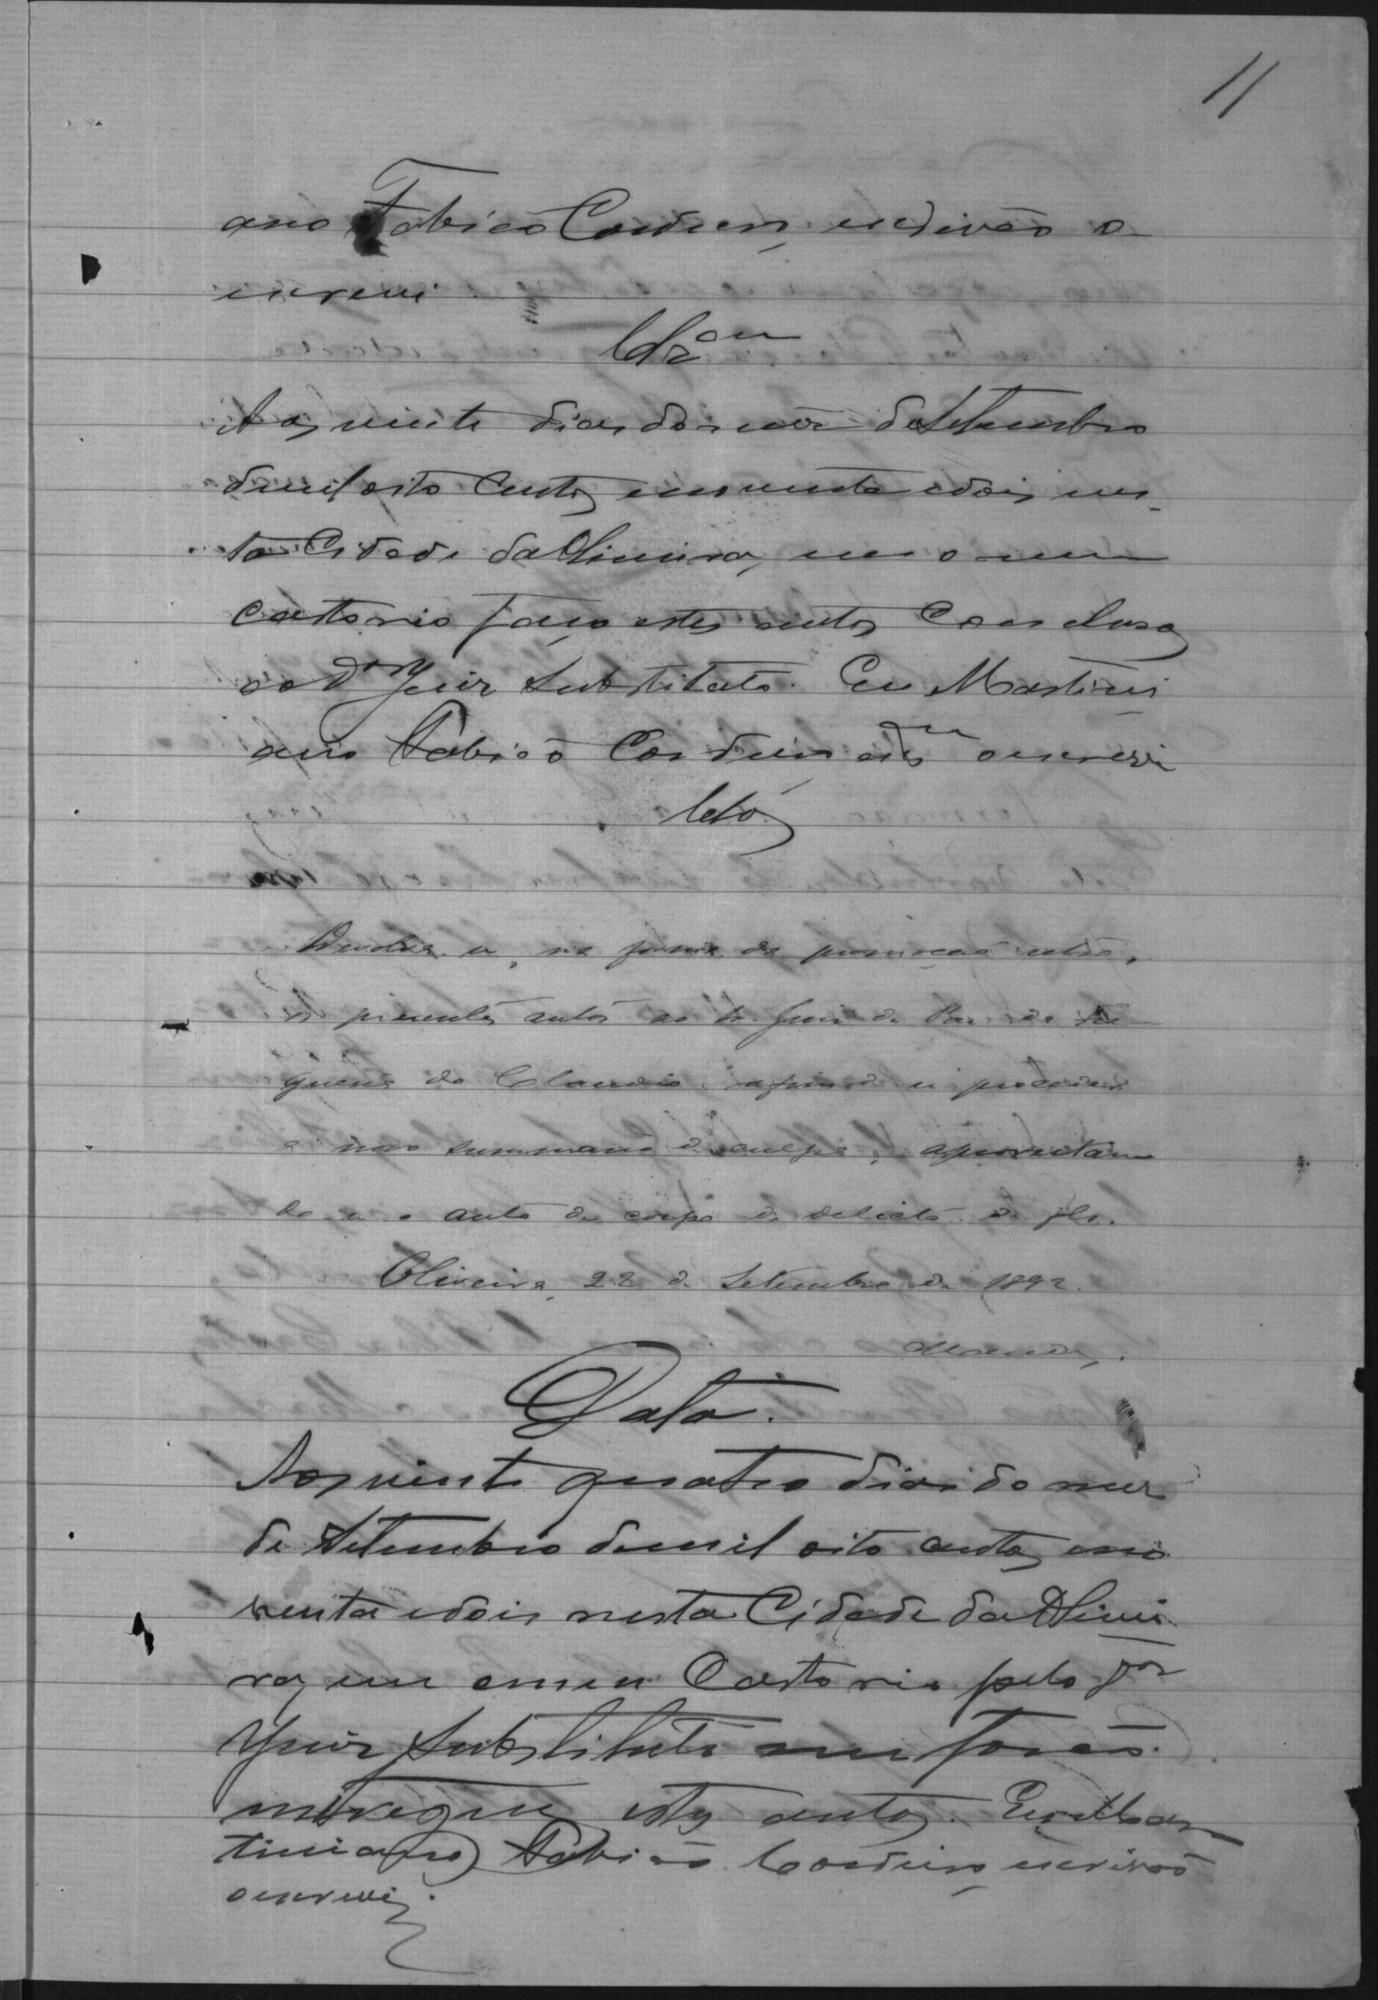 11
ano Fabião Cordeiro, escrivão o
escrevi.
Clsam
Aos vinte dias do mes de Setembro
de mil oito centos e noventa e dois nes-
ta Cidade da Oliveira, em o meu
cartorio faço estes autos Conclusos
ao Dor Juiz Substituto. Eu Martini
ano Fabião Cordeiro escram o escrevi
Clos
Devolva-se, na forma da promoção retro,
os presentes autos ao Sr. Juiz de Paz da Fre
guesia do Claudio, afim de se proceder
a novo summario de culpa, aproveitan
do-se o auto de corpo de delicto de fls.
Oliveira, 22 de Setembro de 1892.
Data.
Aos vinte quatro dias do mes
de Setembro de mil oito centos e no
venta e dois nesta Cidade da Olivei
ra, em o meu Cartorio pelo Dor
Juiz Substituto me forão
entregues estes autos. Eu Mar
tiniano Fabião Cordeiro, escrivão
o escrevi.